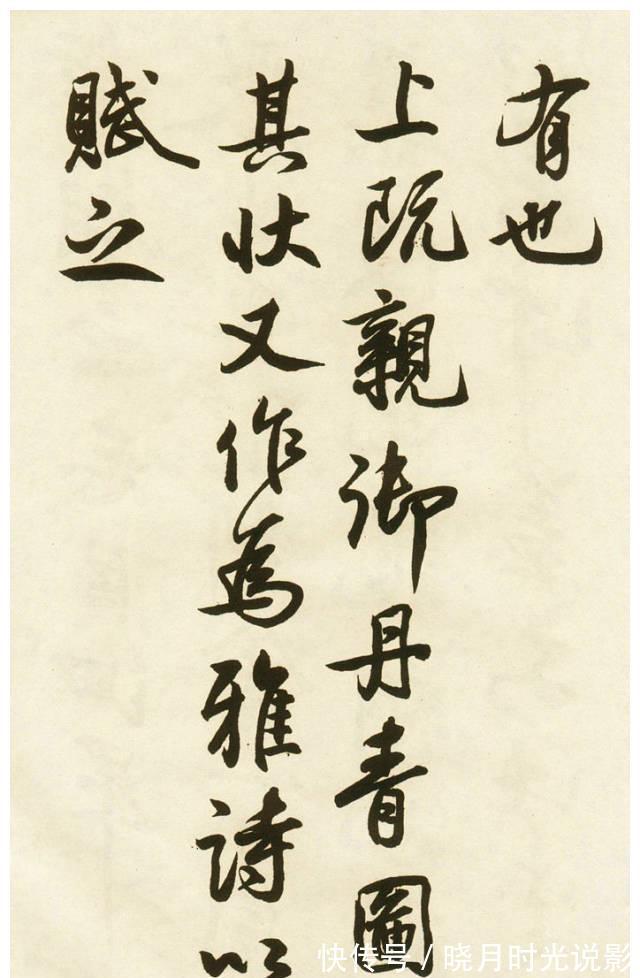 有也
上既親御丹青圖
其狀又作為雅詩以
賦之
快传号/晓月时光说影